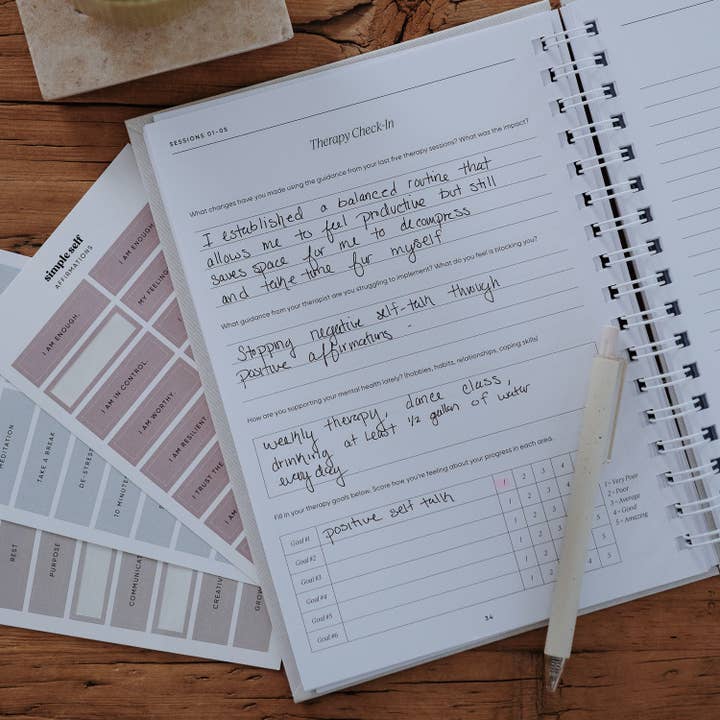 SESSIONS 01-05
Therapy Check-In
What changes have you made using the guidance from your last five therapy sessions? What was the impact?
I established a balanced routine that
allows me to feel productive but still
saves space for me to decompress
and take time for myself
What guidance from your therapist are you struggling to implement? What do you feel is blocking you?
Stopping negative self-talk through
positive affirmations -
How are you supporting your mental health lately? (hobbies, habits, relationships, coping skills)
weekly therapy, dance class,
drinking at least 1/2 gallon of water
every day
Fill in your therapy goals below. Score how you're feeling about your progress in each area.
Goal #1 positive self talk 1 2 3 4
Goal #2 1 2 3
Goal #3 1 2 3
Goal #4 1 2 3 5
Goal #5 1 2 3 5
Goal #6 1 2 3 5
1 = Very Poor
2 = Poor
3 = Average
4 = Good
5 = Amazing
34
simple self
AFFIRMATIONS
I AM ENOUGH.
MY FEELING
I AM ENOUGH.
I AM IN CONTROL.
I AM WORTHY.
I AM RESILIENT.
I TRUST THE
I AM
MEDITATION
TAKE A BREAK
DE-STRES
10 MINUTE
REST
PURPOSE
COMMUNICAT
CREATIV
GROW